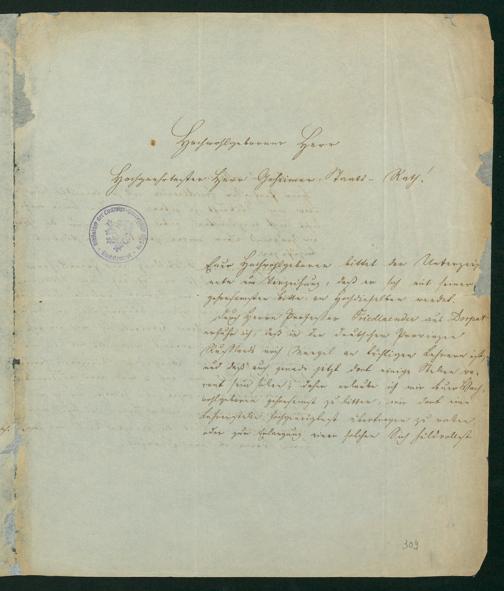 Hochwohlgeborener Herr
Hochgeehrtester Herr Geheimer Staats-Rath!
Euer Hochwohlgeboren bittet der Unterzeich
nete um Verzeihung, daß er sich mit seiner
gehorsamsten Bitte an Hochdieselben wendet.
Durch Herrn Professor Friedlaender aus Dorpat
erfuhr ich, daß in den deutschen Provinzen
Rußlands noch Mangel an tüchtigen Lehrern ist,
und daß auch gerade jetzt dort einige Stellen va-
cant sein sollen; daher erlaube ich mir Euer Hoch
wohlgeboren gehorsamst zu bitten, mir dort eine
Lehrerstelle hochgeneigtest übertragen zu wollen
oder zur Erlangung einer solchen Sich huldvollest
309